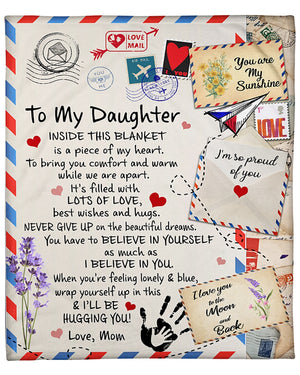 LOVE
MAIL
You are
My
Sunshine
To My Daughter
LOVE
INSIDE THIS BLANKET
is a piece of my heart.
To bring you comfort and warm
while we are apart.
It's filled with
LOTS OF LOVE,
best wishes and hugs.
NEVER GIVE UP on the beautiful dreams.
You have to BELIEVE IN YOURSELF
as much as
I BELIEVE IN YOU.
When you're feeling lonely & blue,
wrap yourself up in this
& I'LL BE
HUGGING YOU!
Love, Mom
I'm so proud
of you
I love you
to the
Moon
and
Back